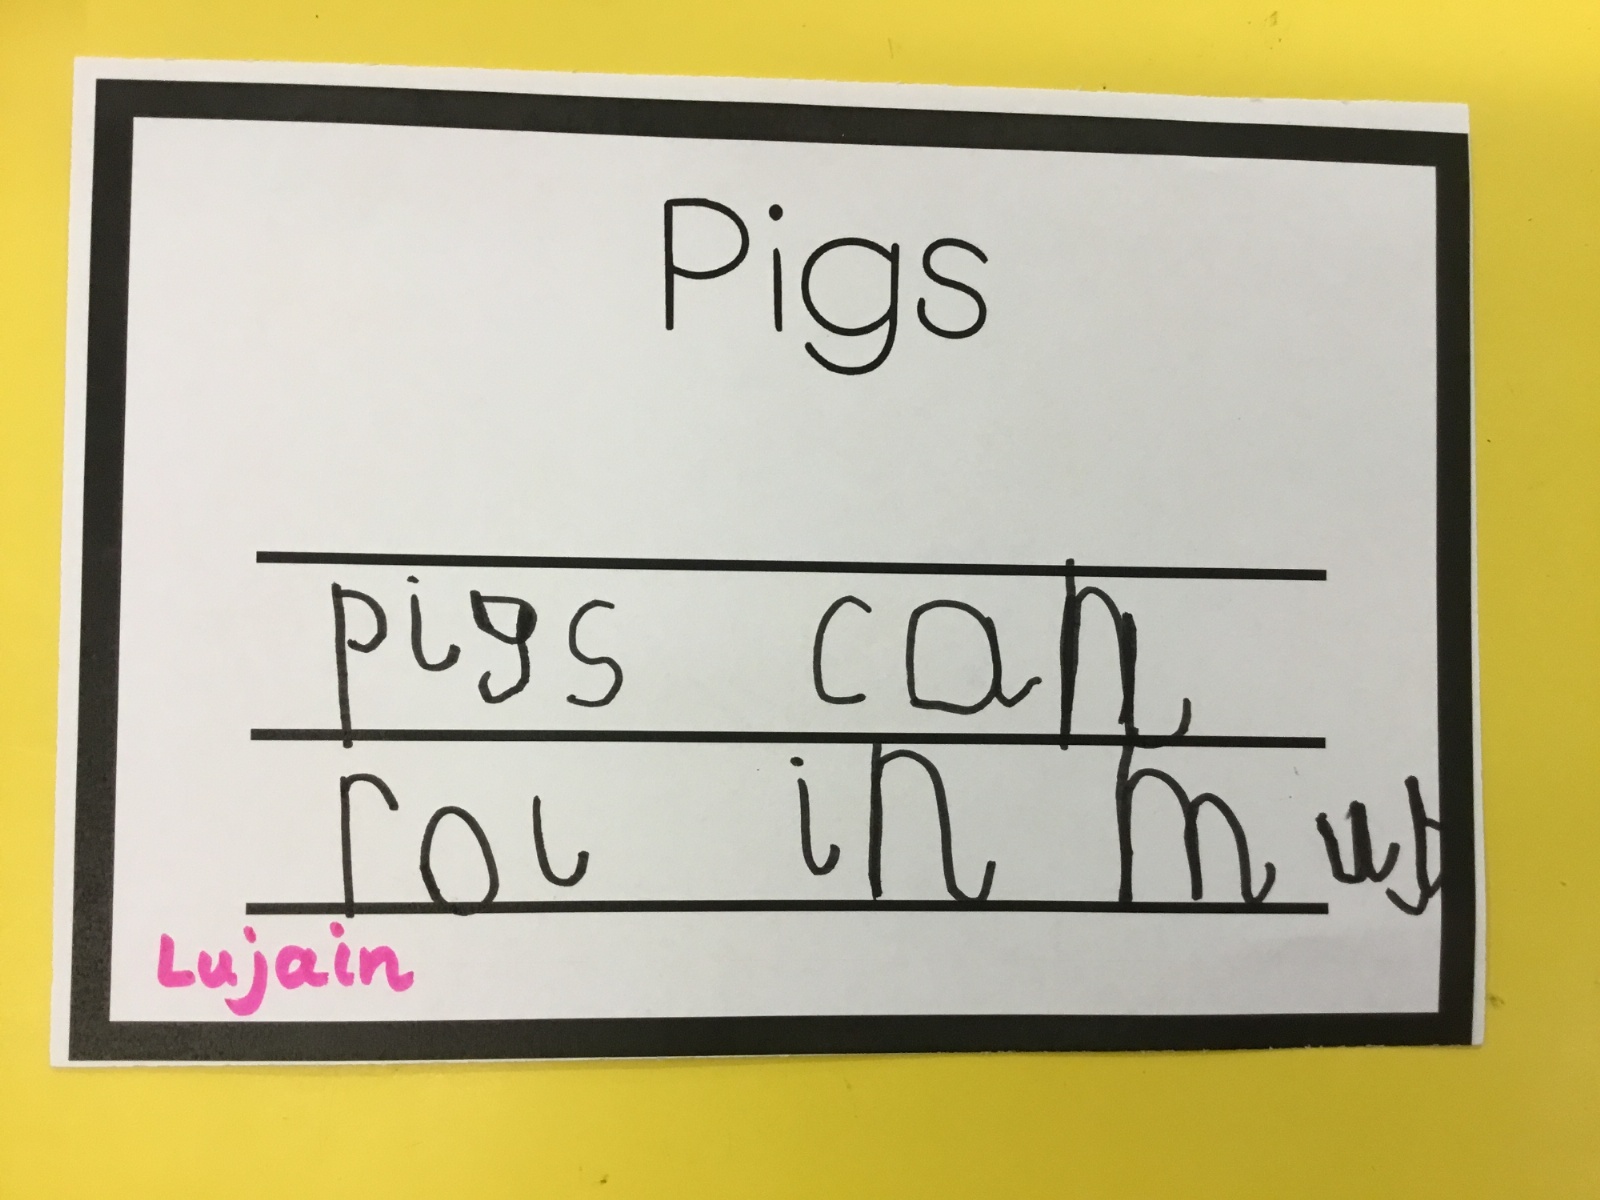 Pigs
pigs can
rol in mud
Lujain